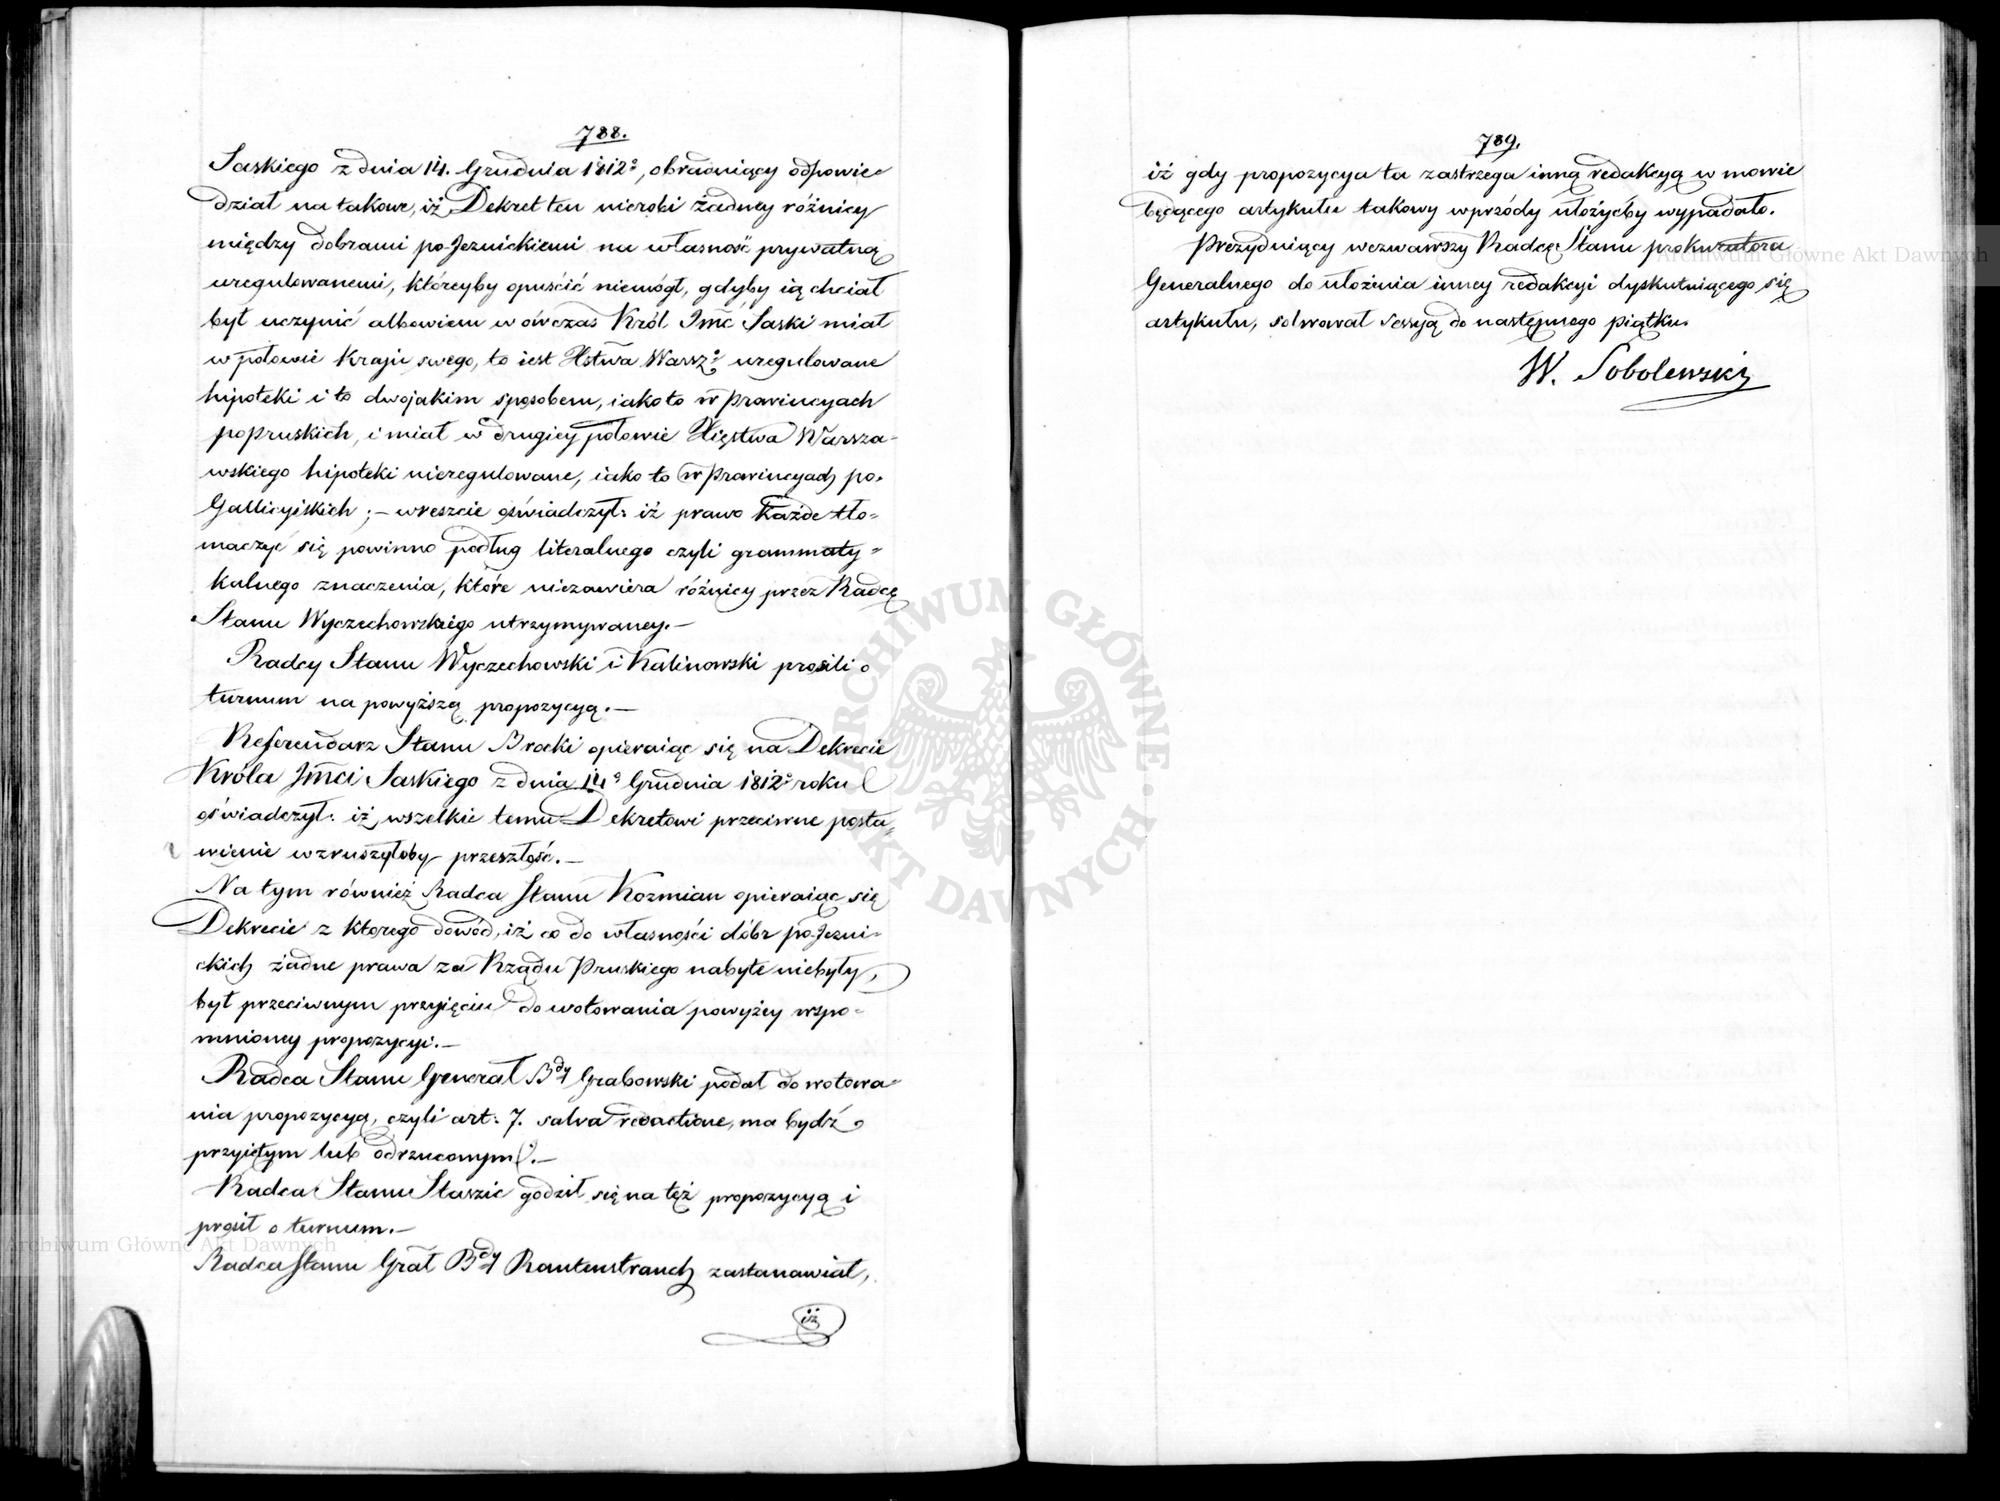 788.
Saskiego z dnia 14. Grudnia 1812º, obradniący odpowie-
dział na takowe, iż Dekret ten nierobi żadney różnicy
między dobrami po-Jezuickiemi na własność prywatną
uregulowanemi, któreyby opuścić niemógł, gdyby ią chciał
był uczynić albowiem w ówczas Król Jmć Saski miał
w połowie Kraju swego, to iest Xstwa Warszº uregulowane
hipoteki i to dwojakim sposobem, iako to w Prowincyach
popruskich, i miał w drugiey połowie Xięstwa Warsza-
wskiego hipoteki nieregulowane, iako to w Prowincyach po-
Gallicyiskich ; – wreszcie oświadczył: iż prawo każde tło-
maczyć się powinno podług literalnego czyli grammaty-
kalnego znaczenia, które niezawiera różnicy przez Radcę
Stanu Wyczechowskiego utrzymywaney. –
Radcy Stanu Wyczechowski i Kalinowski prosili o
turnum na powyższą propozycyą. –
Referendarz Stanu Brocki opieraiąc się na Dekrecie
Króla Jmci Saskiego z dnia 14º Grudnia 1812º roku
oświadczył: iż wszelkie temu Dekretowi przeciwne posta-
wienie wzruszyłoby przeszłość. –
Na tym również Radca Stanu Kozmian opieraiąc się
Dekrecie z ktorego dowód, iż co do własności dóbr po-Jezui-
ckich żadne prawa za Rządu Pruskiego nabyte niebyły,
był przeciwnym przyięciu do wotowania powyżey wspo-
mnioney propozycyi. –
Radca Stanu Generał Bdy Grabowski podał do wotowa-
nia propozycyą, czyli art: 7. salva redactione, ma bydź
przyiętym lub odrzuconym. –
Radca Stanu Staszic godził się na też propozycyą i
prosił o turnum. –
Radca Stanu Grał Bdy Rautenstrauch zastanawiał,
iż
789.
iż gdy propozycya ta zastrzega inną redakcyą w mowie
będącego artykułu takowy wprzódy ułożyćby wypadało.
Prezyduiący wezwawszy Radcę Stanu prokuratora
Generalnego do ułożenia inney redakcyi dyskutuiącego się
artykułu, solwował sessyą do następnego piątku.
W. Sobolewski
ARCHIWUM GŁÓWNE AKT DAWNYCH
Archiwum Główne Akt Dawnych
Archiwum Główne Akt Dawnych